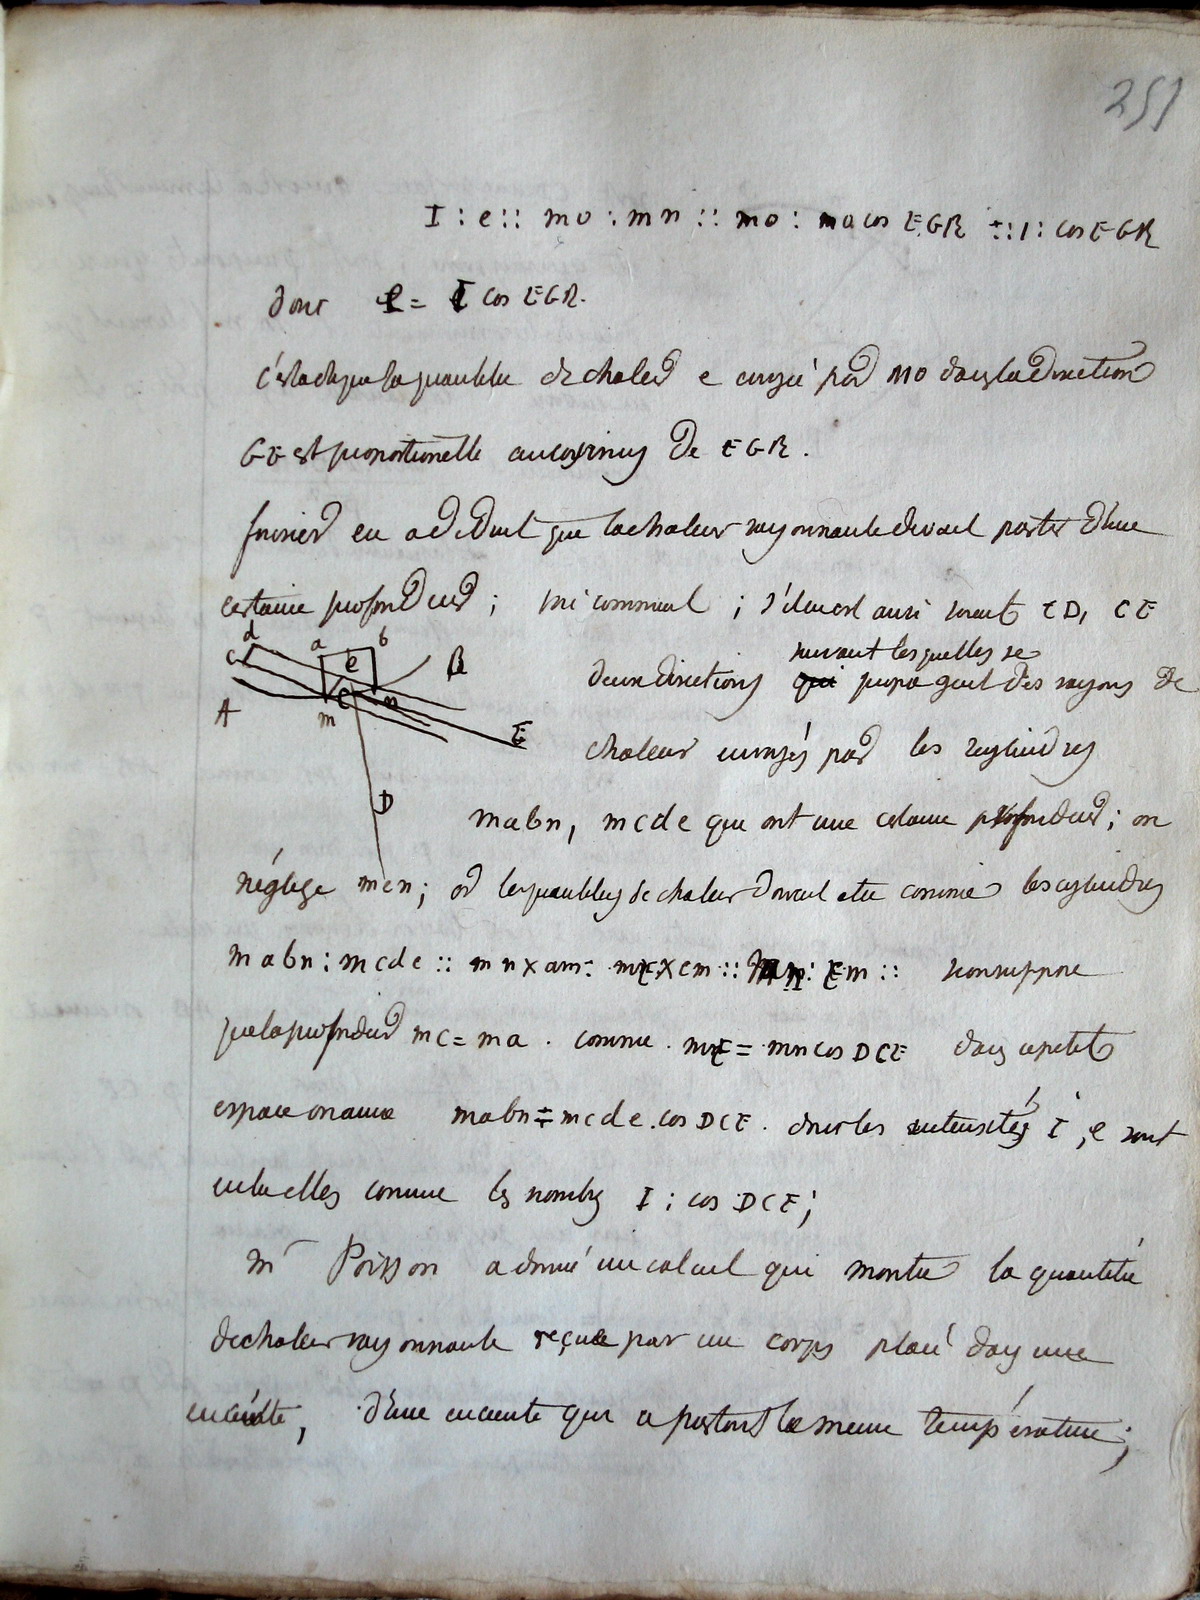 251
I : e :: mo : mn :: mo : mo cos EGR :: 1 : cos EGR
donc e = I cos EGR.
c'est à dire que la quantité de chaleur e envoyée par mo dans la direction
GE est proportionnelle au cosinus de EGR.
fourier en a déduit que la chaleur rayonnante devait partir d'une
certaine profondeur ; voici comment ; soient CD, CE
d a b B
c e
A m C n E
D
deux directions suivant lesquelles se propagent des rayons de
chaleur envoyés par les cylindres
mabn, mcde qui ont une certaine profondeur ; on
néglige men ; or les quantités de chaleur doivent etre comme les cylindres
mabn : mcde :: mn x am : me x cm :: mn : em :: si on suppose
que la profondeur mc = ma . comme . me = mn cos DCE dans ce petit
espace on aura mabn : mcde . cos DCE . donc les intensités I, e sont
entre elles comme les nombres I : cos DCE ;
mr Poisson a donné un calcul qui montre la quantité
de chaleur rayonnante reçue par un corps placé dans une
enceinte, d'une enceinte qui a partout la meme température ;